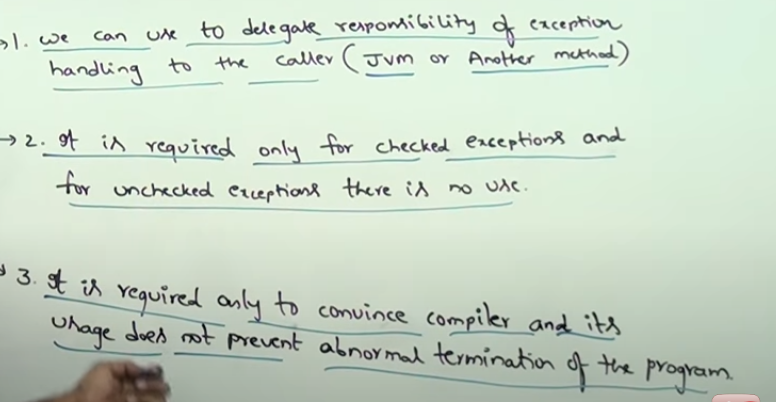 →1. we can use to delegate responsibility of exception
handling to the caller (Jvm or Another method)
→2. It is required only for checked exceptions and
for unchecked exceptions there is no use.
3. It is required only to convince compiler and its
usage does not prevent abnormal termination of the program.